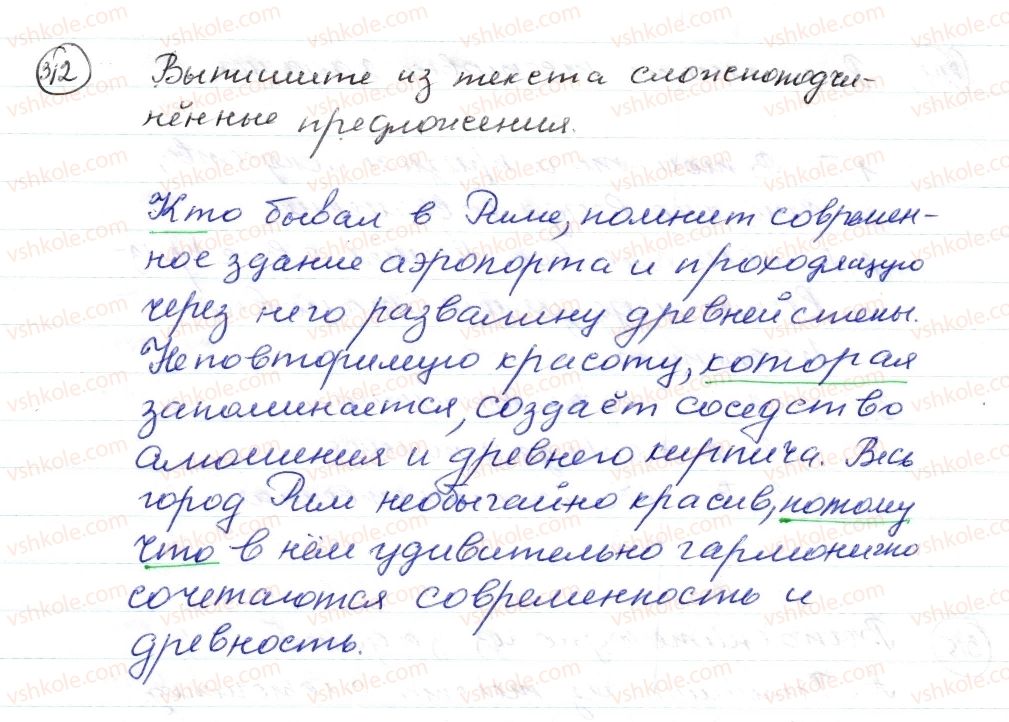 312 Выпишите из текста сложноподчи-
нённые предложения.
Кто бывал в Риме, помнит современ-
ное здание аэропорта и проходящую
через него развалину древней стены.
Неповторимую красоту, которая
запоминается, создаёт соседство
алюминия и древнего кирпича. Весь
город Рим необычайно красив, потому
что в нём удивительно гармонично
сочетаются современность и
древность.